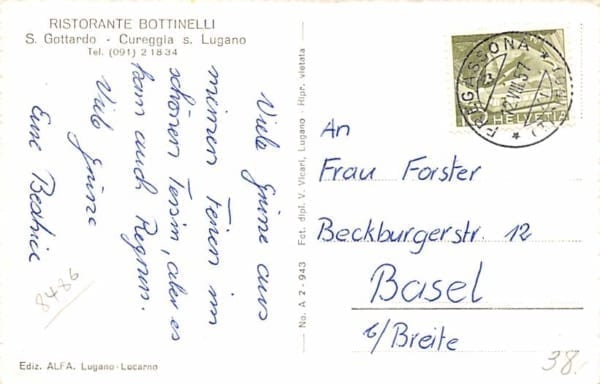 RISTORANTE BOTTINELLI
S. Gottardo - Cureggia s. Lugano
Tel. (091) 2 18 34
Viele Grüsse aus
meinen Ferien im
schönen Tessin, aber es
kann auch Regnen.
Viele Grüsse
Eure Beatrice
8486
Ediz. ALFA. Lugano-Locarno
No. A 2 - 943 Fot. dipl. V. Vicari, Lugano Ripr. vietata
PREGASSONA
VIII.57
HELVETIA
An
Frau Forster
Beckburgerstr. 12
Basel
b/Breite
38.